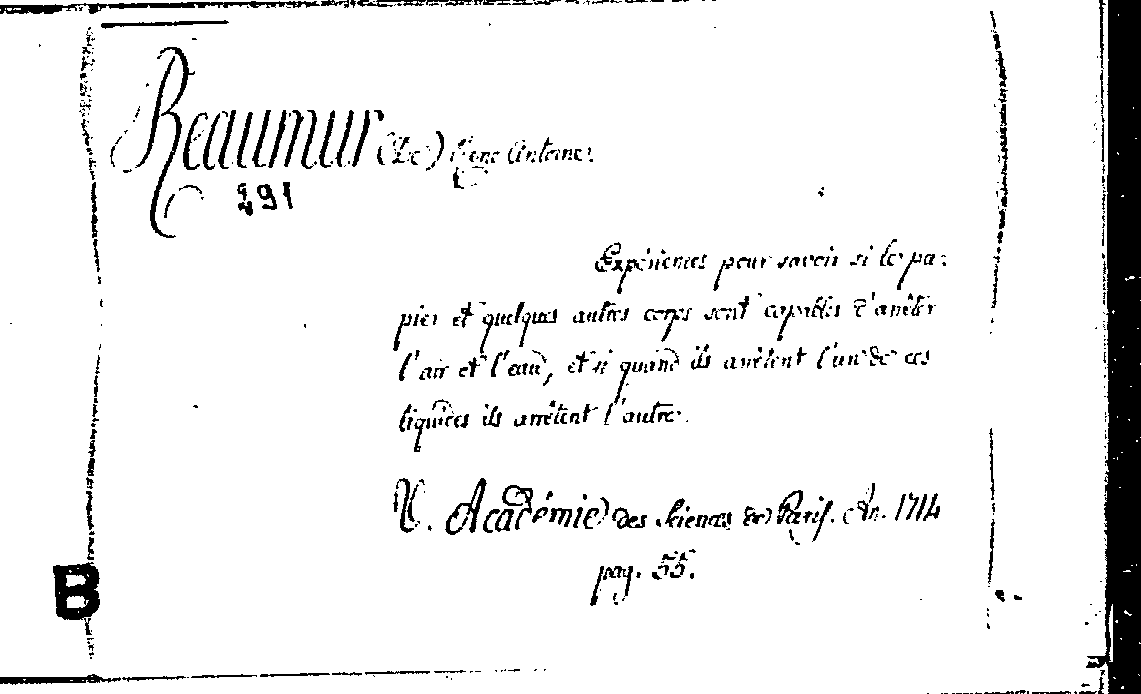 Reaumur (De) Rene Antoine.
291
Expériences pour savoir si le pa-
pier et quelques autres corps sont capables d'arrêter
l'air et l'eau, et si quand ils arrêtent l'un de ces
liquides ils arrêtent l'autre.
V. Académie des Sciences de Paris. An. 1714
pag. 55.
B